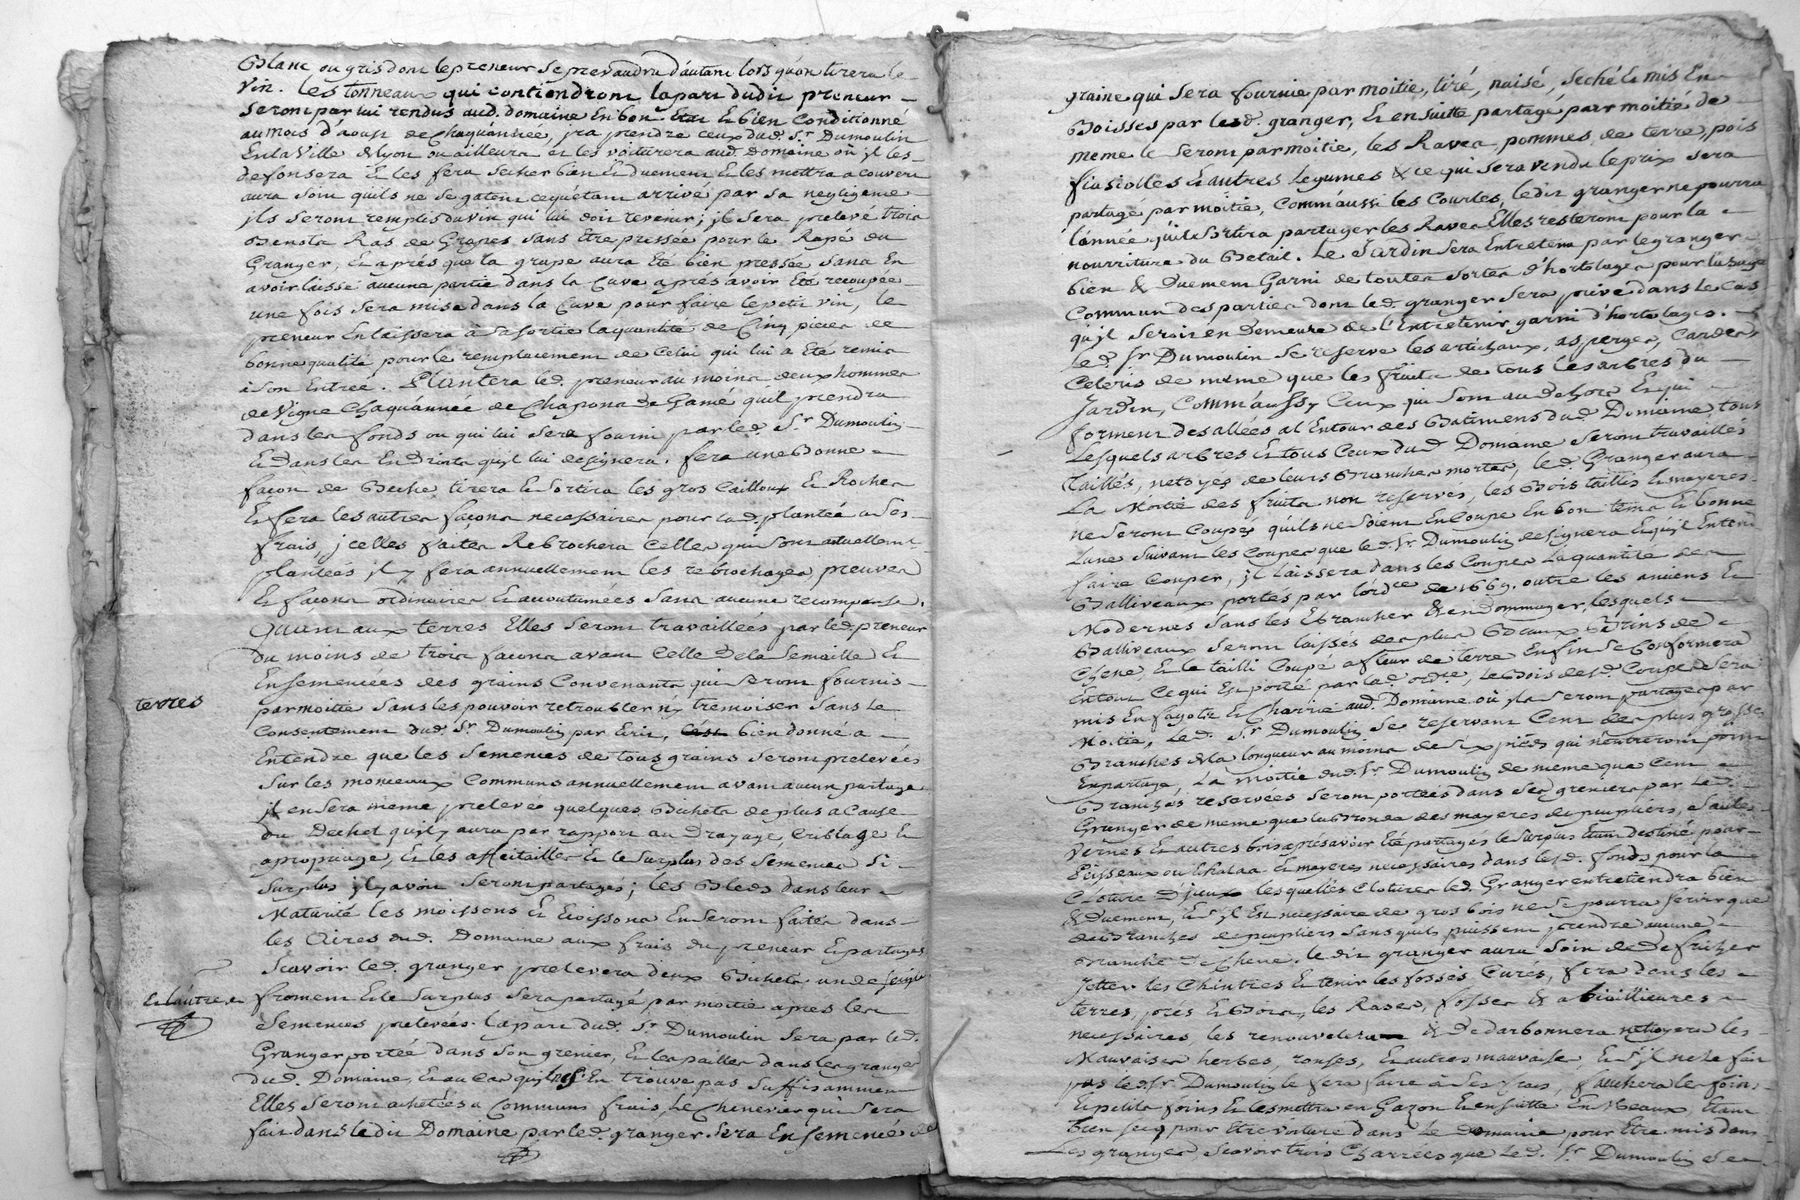 Blanc ou gris dont le preneur se prevaudra d'autant lors qu'on tirera le
vin. Les tonneaux qui contiendront la part dudit preneur
seront par lui rendus aud. domaine en bon etat et bien conditionné
au mois d'aoust de chaqu'année, jra prendre ceux dud. Sr. Dumoulin
en la ville Nyon ou ailleurs et les voiturera aud. Domaine où jl les
defonsera et les fera secher bien et duement et les mettra a couvert
aura soin quils ne se gatent ce qu'étant arrivé par sa negligence
jls seront remplis du vin qui lui doit revenir; jl sera prelevé trois
Benots Ras de Grapes sans être pressée pour le Rapé du
Granger, et aprés que la grape aura été bien pressée sans en
avoir laissé aucune partie dans la cuve aprés avoir été recoupée
une fois sera mise dans la cuve pour faire le petit vin, le
preneur en laissera à sa sortie la quantité de Cinq pieces de
bonne qualité pour le remplacement de celui qui lui a été remis
à son entrée. Plantera led. preneur au moins deux hommes
de vigne chaqu'année de chapons de Gamé quil prendra
dans les fonds ou qui lui sera fourni par led. Sr. Dumoulin
et dans les endroits qu'jl lui designera. fera une bonne
façon de Beche tirera et sortira les gros cailloux et Roches
et fera les autres façons necessaires pour lad. plantée a ses
frais, jcelles faites Rebrochera celles qui sont actuellement
plantées jl y fera annuellement les rebrochages, preuves
et façons ordinaires et accoutumées sans aucune recompense.
Quant aux terres Elles seront travaillées par led. preneur
du moins de trois façons avant celle de la semaille et
Ensemencées des grains convenants qui seront fournis
terres
par moitié sans les pouvoir retroubler ny tremoiser sans le
consentement dud. Sr. Dumoulin par écrit, bien donné a
Entendre que les semences de tous grains seront prelevées
sur les monceaux communs annuellement avant aucun partage
jl en sera même prelevé quelques Bichets de plus a cause
du Dechet qu'jl y aura par rapport au Drayage, criblage et
apropriage, et les affeitailles et le surplus des semences si
surplus jl y avoit seront partagés; les Bleds dans leur
Maturité les moissons et Ecoissons en seront faites dans
les Aires dud. Domaine aux frais du preneur et partagés
scavoir led. granger prelevera deux Bichets un de seigle
et l'autre de
froment et le surplus sera partagé par moitié apres les
semences prelevées. la part dud. Sr. Dumoulin sera par led.
Granger portée dans son grenier, et les pailles dans les granges
dud. Domaine, et au cas qu'jl ne s'en trouve pas suffisamment
Elles seront achetées a communs frais. Le Chenevier qui sera
fait dans ledit Domaine par led. granger sera ensemencé de
graine qui sera fournie par moitié, tiré, naisé, seché et mis en
Boisses par led. granger, et ensuitte partagé par moitié de
meme le seront par moitié, les Raves pommes de terre, pois
fiasolles et autres legumes & ce qui sera vendu le prix sera
partagé par moitié, comm'aussi les Courles, ledit granger ne pourra
l'année qu'il sortira partager les Raves Elles resteront pour la
nourriture du Betail. Le Jardin sera Entretenu par le granger
bien & duement Garni de toutes sortes d'hortolages pour l'usage
Commun des parties dont le d. granger sera privé dans le cas
qu'jl seroit en demeure de l'Entretenir garni d'hortolages.
Led. Sr Dumoulin se reserve les artichaux, asperges, Cardes
Celeris de même que les fruits de tous les arbres du
Jardin, Comm'aussy Ceux qui sont au dehors et qui
forment des allées a l'Entour des Batimens dud. Domaine, tous
Lesquels arbres et tous Ceux dud. Domaine seront travaillés
taillés, netoyés de leurs Branches mortes, led. Granger aura
La Moitié des fruits non reservés, les Bois taillis et mayeres
ne seront Coupés qu'ils ne soient en Coupe en bon tems et bonne
Lune suivant les Coupes que led. Sr. Dumoulin designera et qu'jl entend
faire Couper, jl laissera dans les Coupes la quantité de
Balliveaux portés par l'ord.ce de 1669. outre les anciens et
Modernes sans les Ebrancher et endommager, lesquels
Balliveaux seront laissés des plus Beaux Brins de
Chene, et le tailli Coupé a fleur de terre enfin se conformera
en tout ce qui est porté par lad. ordce, le Bois desd. Coupes sera
mis en fagots et charrié aud. Domaine où jls seront partagés par
Moitié, Led. Sr. Dumoulin se reservant Cent des plus grosses
Branches de la longueur au moins de six pieds qui n'entreront point
En partage, La moitié dud. Sr. Dumoulin de même que Cent
Branches reservées seront portées dans ses greniers par Led.
Granger de meme que les Brondes des mayeres de peupliers, saules
Vernes et autres bois aprés avoir été partagés le surplus etant destiné pour
Peisseaux ou Echalas et mayeres necessaires dans lesd. fonds pour la
Cloture d'jceux lesquelles clotures led. Granger entretiendra bien
& duement, et s'jl est necessaire de gros bois ne se pourra servir que
des Branches de peupliers sans quils puissent prendre aucune
Branche de Chene. le dit granger aura soin de defricher
jetter les Chintres et tenir les fossés curés, fera dans les
terres, prés et Bois, les Rases, fosses et abeillieures
necessaires, les renouvelera & Dedarbonnera netoyera les
Mauvaises herbes, ronses, et autres mauvaise, et s'jl ne le fait
pas led. Sr. Dumoulin le fera faire à ses frais, fauchera les foins
et petits foins et les mettra en Gazon et ensuitte En Meaux, etant
bien secq pour être voituré dans Le domaine pour être mis dans
Les granges, scavoir trois Charrées que Led. Sr. Dumoulin se